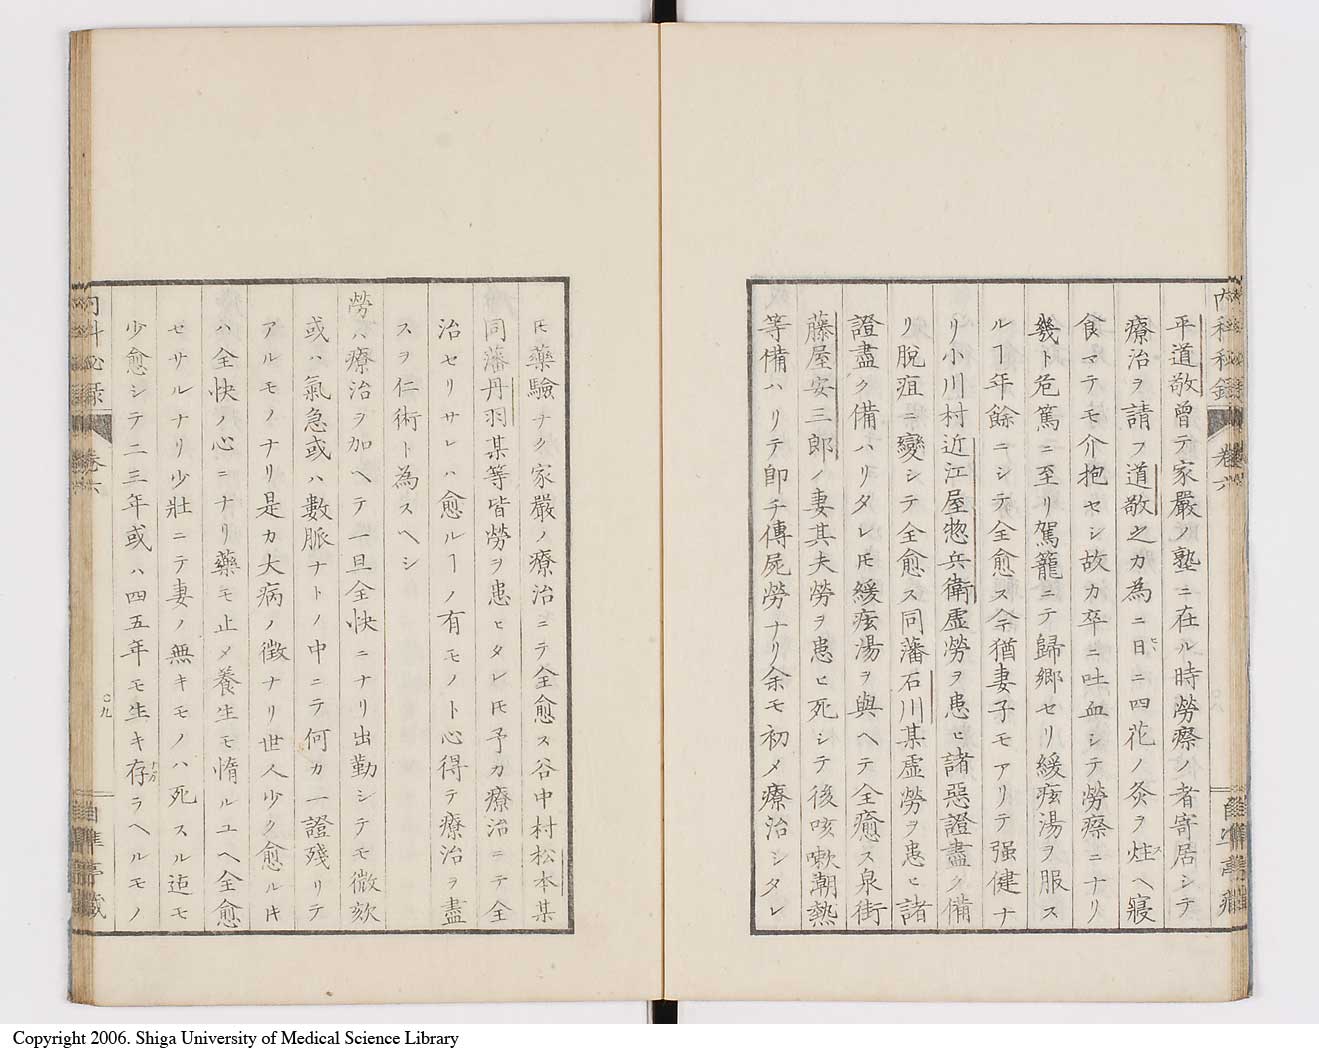 内科秘録 卷六
平道敬曾テ家嚴ノ塾ニ在ル時勞瘵ノ者寄居シテ
療治ヲ請フ道敬之カ為ニ日ニ四花ノ灸ヲ炷ヘ寢
食マテモ介抱セシ故カ卒ニ吐血シテ勞瘵ニナリ
幾ト危篤ニ至リ駕籠ニテ歸郷セリ緩痃湯ヲ服ス
ルヿ年餘ニシテ全愈ス今猶妻子モアリテ强健ナ
リ小川村近江屋惣兵衛虚勞ヲ患ヒ諸惡證盡ク備
リ脱疽ニ變シテ全愈ス同藩石川某虚勞ヲ患ヒ諸
證盡ク備ハリタレ𪜈緩痃湯ヲ與ヘテ全癒ス泉街
藤屋安三郎ノ妻其夫勞ヲ患ヒ死シテ後咳嗽潮熱
等備ハリテ即チ傳屍勞ナリ余モ初メ療治シタレ
𪜈藥驗ナク家嚴ノ療治ニテ全愈ス谷中村松本某
同藩丹羽某等皆勞ヲ患ヒタレ𪜈予カ療治ニテ全
治セリサレハ愈ルヿノ有モノト心得テ療治ヲ盡
スヲ仁術ト為スヘシ
勞ハ療治ヲ加ヘテ一旦全快ニナリ出勤シテモ微欬
或ハ氣急或ハ數脈ナトノ中ニテ何カ一證殘リテ
アルモノナリ是カ大病ノ徴ナリ世人少ク愈ルキ
ハ全快ノ心ニナリ藥モ止メ養生モ惰ルユヘ全愈
セサルナリ少壯ニテ妻ノ無キモノハ死スル迄モ
少愈シテ二三年或ハ四五年モ生キ存ラヘルモノ
内科秘録 卷六
〇九
自準亭藏
Copyright 2006. Shiga University of Medical Science Library